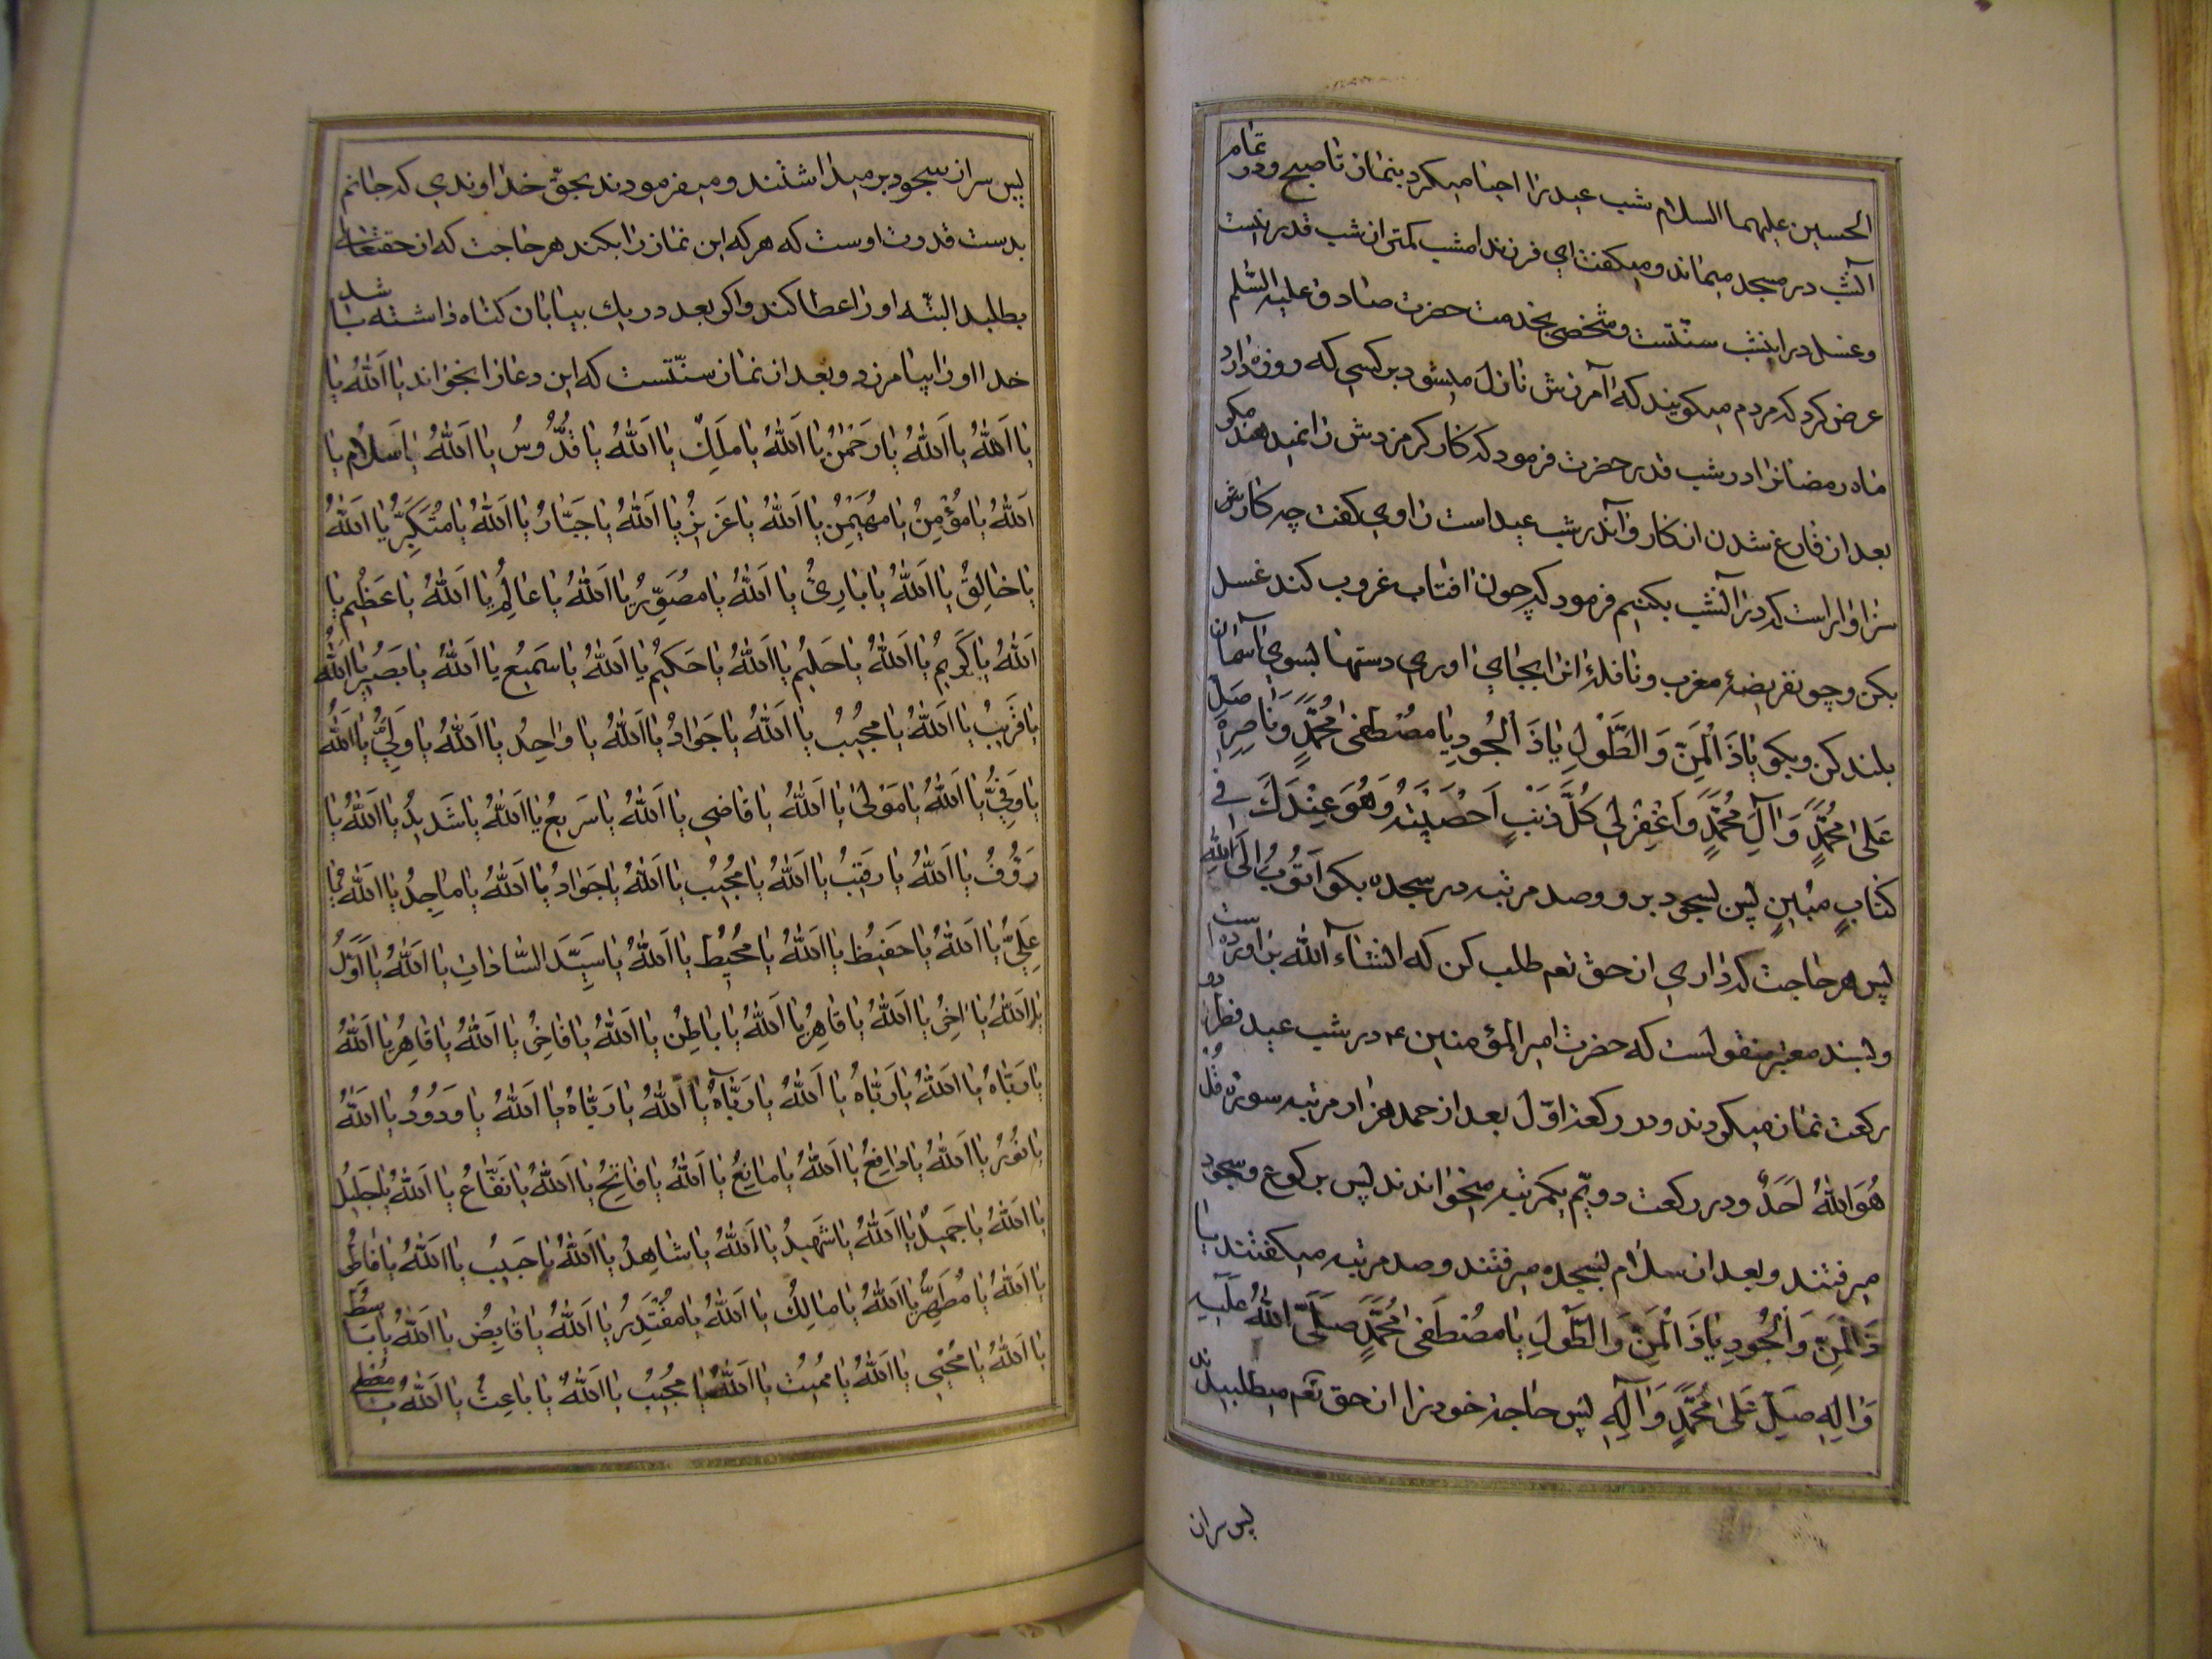 الحسین علیهما السلام شب عید را احیا میکرد بنماز تا صبح و در تمام
آنشب در مسجد میماند و میگفت ای فرزند امشب کمتر از شب قدر نیست
و غسل در اینشب سنّتست و شخصی بخدمت حضرت صادق علیه السّلم
عرض کرد که مردم میگویند که آمرزش نازل میشود بر کسی که روزه دارد
ماه رمضانرا در شب قدر حضرت فرمود که کارکر مزدش را نمیدهند مکر
بعد از فارغ شدن از کار و آندر شب عید است راوی گفت چه کارش
سزاوار است که در آنشب بکنیم فرمود که چون افتاب غروب کند غسل
بکن و چو نفریضهٔ مغرب و نافلهٔ انرا بجای اوری دستها بسوی آسمان
بلند کن و بگو یٰا ذَ الْمَنِّ وَ الطَّوْلِ یٰا ذَ الْجُودِ یٰا مُصْطَفیٰ مُحَمَّدٍ وَ نٰاصِرِهِ صَلِّ
عَلیٰ مُحَمَّدٍ وَ آلِ مُحَمَّدٍ وَ اغْفِرْ لی کُلَّ ذَنْبٍ اَحْصَیْتَهُ وَ هُوَ عِنْدَکَ فی
کِتٰابٍ مُبینٍ پس بسجود برو و صد مرتبه در سجده بگو اَتُوبُ اِلَی اللّٰهِ
پس هر حاجت که داری از حق تعم طلب کن که انشاء الله بر اورده است
و بسند معتبر منقولست که حضرت امیر المؤمنین ع در شب عید فطر دو
رکعت نماز میکردند و در رکعت اوّل بعد از حمد هزار مرتبه سوره قُلْ
هُوَ اللّٰهُ اَحَدٌ و در رکعت دویّم یکمرتبه میخواندند پس برکوع و سجود
میرفتند و بعد از سلام بسجده میرفتند و صد مرتبه میگفتند یٰا
ذَ الْمَنِّ وَ الْجُودِ یٰا ذَ الْمَنِّ وَ الطَّوْلِ یٰا مُصْطَفیٰ مُحَمَّدٍ صَلَّی اللّٰهُ عَلَیْهِ
وَ اٰلِهِ صَلِّ عَلیٰ مُحَمَّدٍ وَ آلِهِ پس حاجت خود را از حق تعم میطلبیدند
پس سر از
پس سر از سجود بر میداشتند و میفرمودند بحقّ خداوندی که جانم
بدست قدرت اوست که هر که این نماز را بکند هر حاجت که از حقتعالی
بطلبد البتّه او را عطا کند و اگر بعدد ریك بیابان کناه داشته باشد
خدا او را بیامرزد و بعد از نماز سنّتست که این دعا را بخواند یٰا اَللّٰهُ یٰا
یٰا اَللّٰهُ یٰا اَللّٰهُ یٰا رَحْمٰنُ یٰا اَللّٰهُ یٰا مَلِكُ یٰا اَللّٰهُ یٰا قُدُّوسُ یٰا اَللّٰهُ یٰا سَلٰامُ یٰا
اَللّٰهُ یٰا مُؤْمِنُ یٰا مُهَیْمِنُ یٰا اَللّٰهُ یٰا عَزیزُ یٰا اَللّٰهُ یٰا جَبّٰارُ یٰا اَللّٰهُ یٰا مُتَکَبِّرُ یٰا اَللّٰهُ
یٰا خٰالِقُ یٰا اَللّٰهُ یٰا بٰارِئُ یٰا اَللّٰهُ یٰا مُصَوِّرُ یٰا اَللّٰهُ یٰا عٰالِمُ یٰا اَللّٰهُ یٰا عَظیمُ یٰا
اَللّٰهُ یٰا کَریمُ یٰا اَللّٰهُ یٰا حَلیمُ یٰا اَللّٰهُ یٰا حَکیمُ یٰا اَللّٰهُ یٰا سَمیعُ یٰا اَللّٰهُ یٰا بَصیرُ یٰا اَللّٰهُ
یٰا قَریبُ یٰا اَللّٰهُ یٰا مُجیبُ یٰا اَللّٰهُ یٰا جَوٰادُ یٰا اَللّٰهُ یٰا وٰاحِدُ یٰا اَللّٰهُ یٰا وَلِیُّ یٰا اَللّٰهُ
یٰا وَفِیُّ یٰا اَللّٰهُ یٰا مَوْلیٰ یٰا اَللّٰهُ یٰا قٰاضی یٰا اَللّٰهُ یٰا سَریعُ یٰا اَللّٰهُ یٰا شَدیدُ یٰا اَللّٰهُ یٰا
رَؤُفُ یٰا اَللّٰهُ یٰا رَقیبُ یٰا اَللّٰهُ یٰا مُجیبُ یٰا اَللّٰهُ یٰا جَوٰادُ یٰا اَللّٰهُ یٰا مٰاجِدُ یٰا اَللّٰهُ یٰا
عَلِیُّ یٰا اَللّٰهُ یٰا حَفیظُ یٰا اَللّٰهُ یٰا مُحیطُ یٰا اَللّٰهُ یٰا سَیِّدَ السّٰادٰاتِ یٰا اَللّٰهُ یٰا اَوَّلُ
یٰا اَللّٰهُ یٰا اٰخِرُ یٰا اَللّٰهُ یٰا قٰاهِرُ یٰا اَللّٰهُ یٰا بٰاطِنُ یٰا اَللّٰهُ یٰا فٰاخِرُ یٰا اَللّٰهُ یٰا قٰاهِرُ یٰا اَللّٰهُ
یٰا رَبّٰاهُ یٰا اَللّٰهُ یٰا رَبّٰاهُ یٰا اَللّٰهُ یٰا رَبّٰاهُ یٰا اَللّٰهُ یٰا رَبّٰاهُ یٰا اَللّٰهُ یٰا وَدُودُ یٰا اَللّٰهُ
یٰا نُورُ یٰا اَللّٰهُ یٰا دٰافِعُ یٰا اَللّٰهُ یٰا مٰانِعُ یٰا اَللّٰهُ یٰا فٰاتِحُ یٰا اَللّٰهُ یٰا نَفّٰاعُ یٰا اَللّٰهُ یٰا جَلیلُ
یٰا اَللّٰهُ یٰا جَمیلُ یٰا اَللّٰهُ یٰا شَهیدُ یٰا اَللّٰهُ یٰا شٰاهِدُ یٰا اَللّٰهُ یٰا حَبیبُ یٰا اَللّٰهُ یٰا فٰاطِرُ
یٰا اَللّٰهُ یٰا مُطَهِّرُ یٰا اَللّٰهُ یٰا مٰالِكُ یٰا اَللّٰهُ یٰا مُقْتَدِرُ یٰا اَللّٰهُ یٰا قٰابِضُ یٰا اَللّٰهُ یٰا بٰاسِطُ
یٰا اَللّٰهُ یٰا مُحْیی یٰا اَللّٰهُ یٰا مُمیتُ یٰا اَللّٰهُ یٰا مُجیبُ یٰا اَللّٰهُ یٰا بٰاعِثُ یٰا اَللّٰهُ یٰا مُعْطی